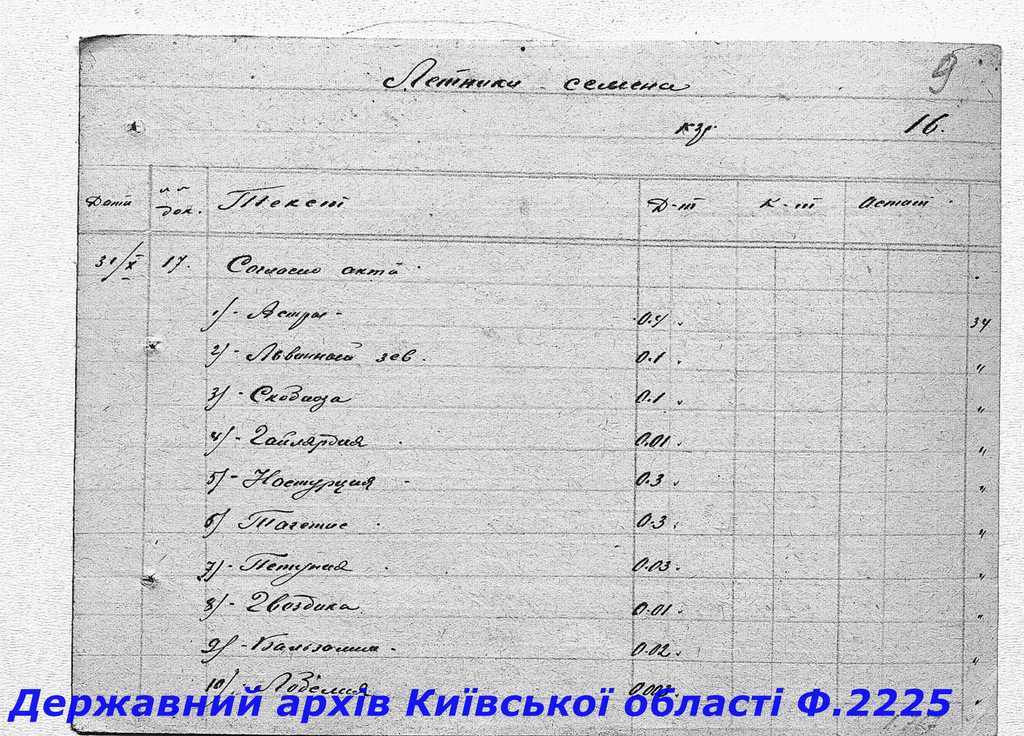 9
Летники семена
кгр. 16.
Дата №№ док. Текст Д-т К-т Астат
31/X 17. Согласно акта
1) - Астры - 0.4 34
2) - Львинный зев. 0.1 "
3) - Скабиоза 0.1 "
4) - Гайлярдия 0.01 "
5) - Настурция - 0.3 "
6) Тагетис 0.3 "
7) - Петуния 0.03 "
8) - Гвоздика 0.01 "
9) - Бальзамин - 0.02 "
10) - Лобелия
Державний архів Київської області Ф.2225